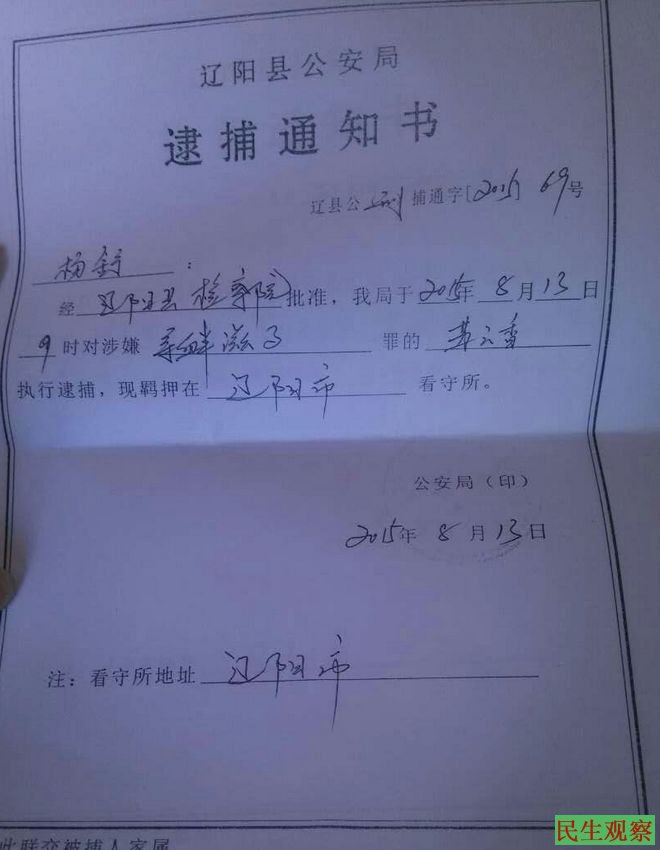 辽阳县公安局
逮捕通知书
辽县公 刑 捕通字[2015] 69号
杨 :
经 辽阳县检察院 批准，我局于2015年 8月13日
9时对涉嫌 寻衅滋事 罪的
执行逮捕，现羁押在 辽阳市 看守所。
公安局（印）
2015年 8月13日
注：看守所地址 辽阳市
此联交被捕人家属
民生观察